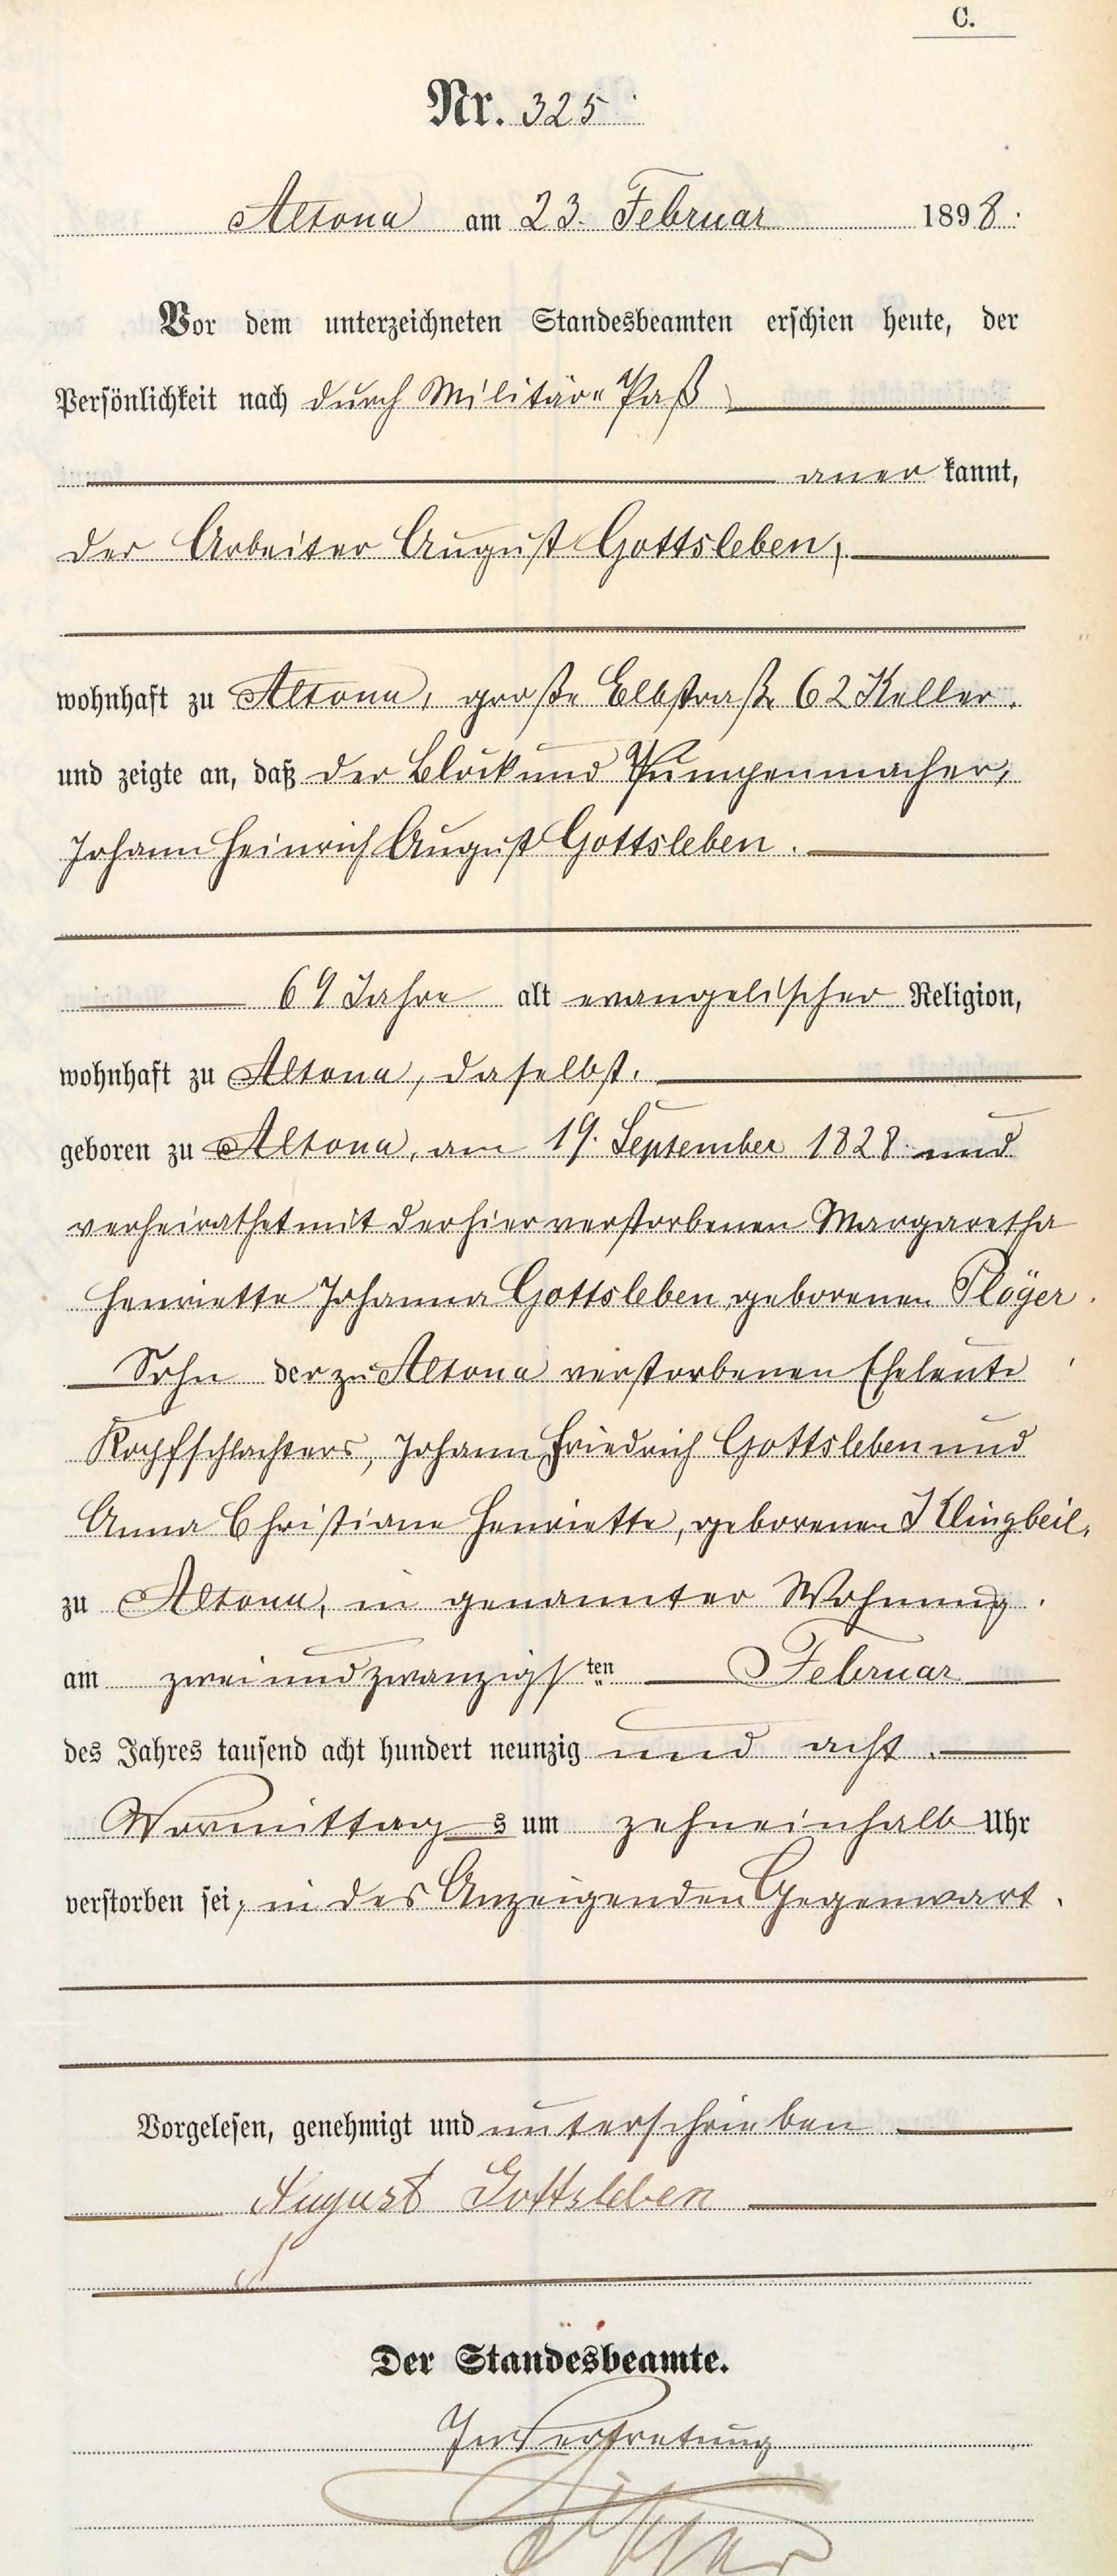 C.
Nr. 325
Altona am 23. Februar 1898.
Vor dem unterzeichneten Standesbeamten erschien heute, der
Persönlichkeit nach durch Militär-Paß
aner kannt,
der Arbeiter August Gottsleben,
wohnhaft zu Altona, große Elbstraße 62 Keller.
und zeigte an, daß der Block und Pumpenmacher,
Johann Heinrich August Gottsleben.
69 Jahre alt evangelischer Religion,
wohnhaft zu Altona, daselbst.
geboren zu Altona, am 19. September 1828 und
verheirathet mit der hier verstorbenen Margaretha
Henriette Johanna Gottsleben geborenen Plöger.
Sohn der zu Altona verstorbenen Eheleute
Kopfschlachters, Johann Friedrich Gottsleben und
Anna Christiane Henriette, geborenen Klingbeil,
zu Altona, in genannter Wohnung.
am zweiundzwanzigsten Februar
des Jahres tausend acht hundert neunzig und acht.
Vormittag s um zehneinhalb Uhr
verstorben sei, in des Anzeigenden Gegenwart.
Vorgelesen, genehmigt und unterschrieben
August Gottsleben
Der Standesbeamte.
In Vertretung